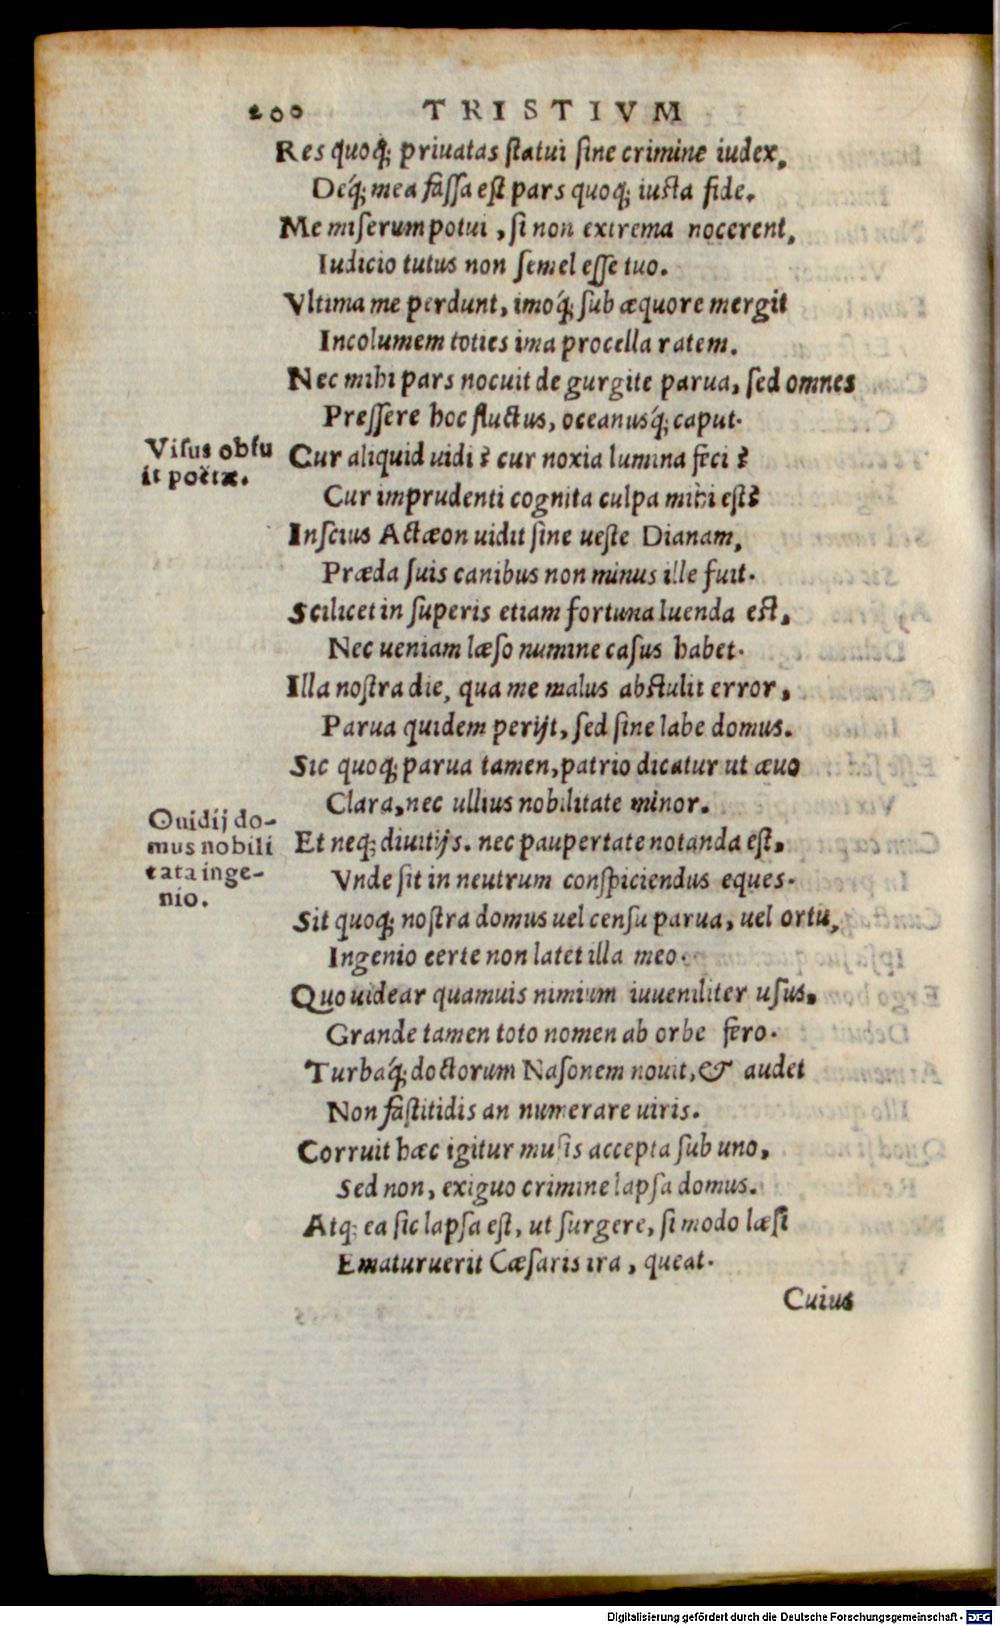 200 TRISTIVM
Res quoq; priuatas statui sine crimine iudex,
Deq́; mea fassa est pars quoq; iusta fide.
Me miserum potui, si non extrema nocerent,
Iudicio tutus non semel esse tuo.
Vltima me perdunt, imoq́; sub æquore mergit
Incolumem toties ima procella ratem.
Nec mihi pars nocuit de gurgite parua, sed omnes
Pressere hoc fluctus, oceanusq́; caput.
Visus obfu
it poëtæ.
Cur aliquid uidi? cur noxia lumina feci?
Cur imprudenti cognita culpa mihi est?
Inscius Actæon uidit sine ueste Dianam,
Præda suis canibus non minus ille fuit.
Scilicet in superis etiam fortuna luenda est,
Nec ueniam læso numine casus habet.
Illa nostra die, qua me malus abstulit error,
Parua quidem perijt, sed sine labe domus.
Sic quoq; parua tamen, patrio dicatur ut æuo
Clara, nec ullius nobilitate minor.
Ouidij do-
mus nobili
tata inge-
nio.
Et neq; diuitijs. nec paupertate notanda est,
Vnde sit in neutrum conspiciendus eques.
Sit quoq; nostra domus uel censu parua, uel ortu,
Ingenio certe non latet illa meo.
Quo uidear quamuis nimium iuueniliter usus,
Grande tamen toto nomen ab orbe fero.
Turbaq́; doctorum Nasonem nouit, & audet
Non fastitidis an numerare uiris.
Corruit hæc igitur musis accepta sub uno,
Sed non, exiguo crimine lapsa domus.
Atq; ea sic lapsa est, ut surgere, si modo læsi
Ematuruerit Cæsaris ira, queat.
Cuius
Digitalisierung gefördert durch die Deutsche Forschungsgemeinschaft - DFG